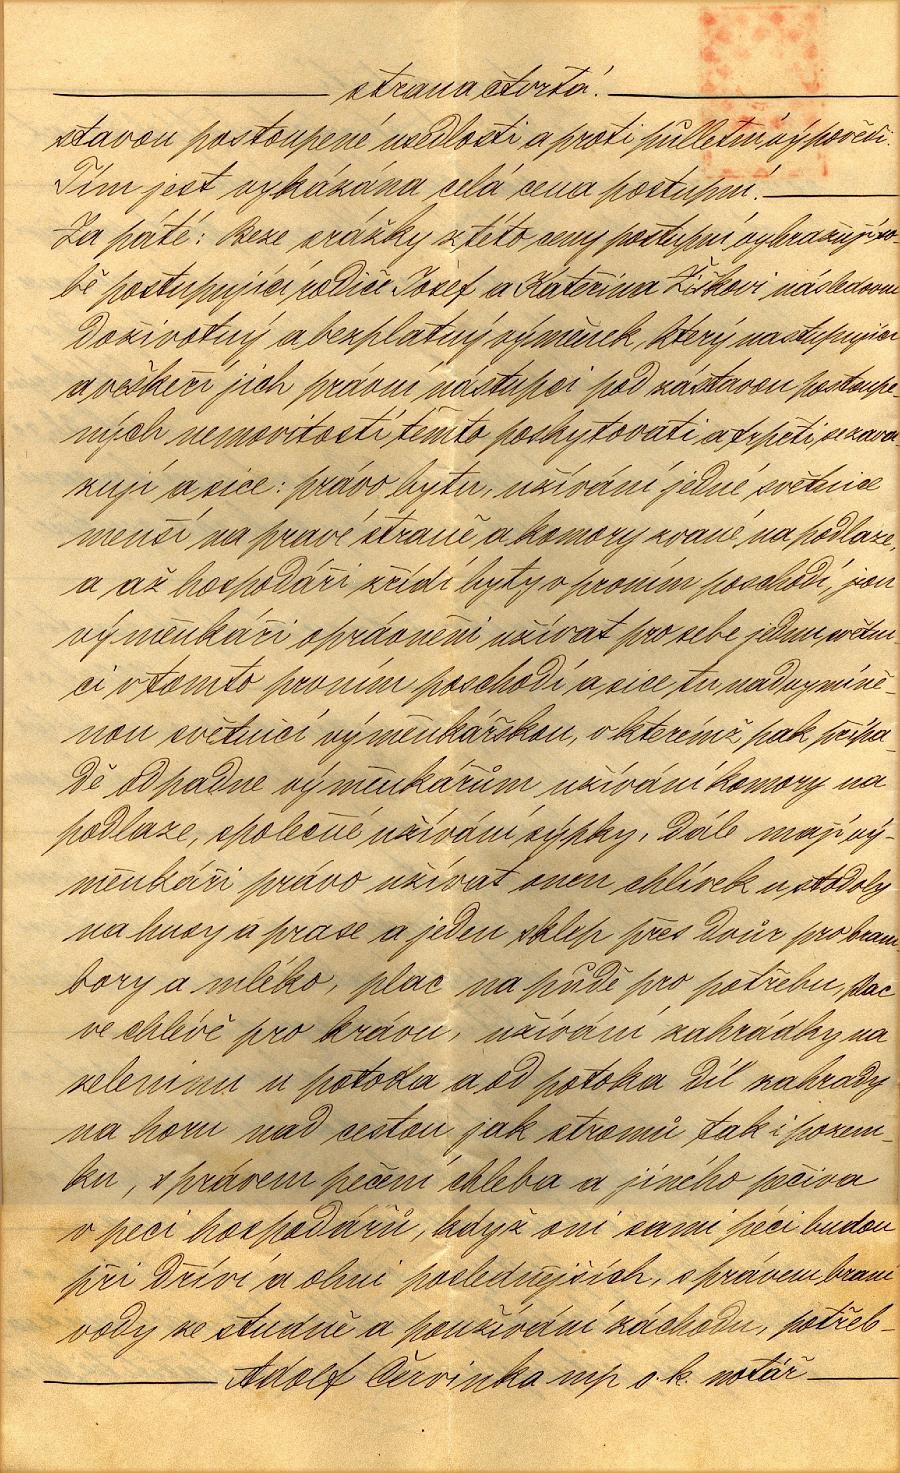 strana čtvrtá.
stavou postoupené usedlosti a proti půlletní výpovědi.
Tím jest vykázána celá cena postupní.
Za páté: Beze srážky z této ceny postupní vyhražují so-
bě postupující rodiče Josef a Kateřina Žižkovi následovní
doživotný a bezplatný výměnek, který nastupující
a veškeří jich právní nástupci pod zástavou postoupe-
ných nemovitostí těmto poskytovati a trpěti se zava-
zují a sice: právo bytu, užívání jedné světnice
menší na pravé straně a komory zvané na podlaze,
a až hospodáři zřídí byty v prvním poschodí, jsou
výměnkáři oprávněni užívat pro sebe jednu světni-
ci v tomto prvním poschodí a sice tu nad vymíně-
nou světnicí výměnkářskou, v kterémž pak přípa-
dě odpadne výměnkářům užívání komory na
podlaze, společné užívání sýpky. Dále mají vý-
měnkáři právo užívat onen chlívek u stodoly
na husy a prase a jeden sklep přes dvůr pro bram-
bory a mléko, plac na půdě pro potřebu, plac
ve chlévě pro krávu, užívání zahrádky na
zeleninu u potoka a od potoka díl zahrady
na horu nad cestou jak stromů tak i pozem-
ku, s právem pečení chleba a jiného pečiva
v peci hospodářů, když oni sami péci budou
při dříví a ohni poslednějších, s právem braní
vody ze studně a používání záchodu, potřeb-
Adolf Červinka mp c.k. notář